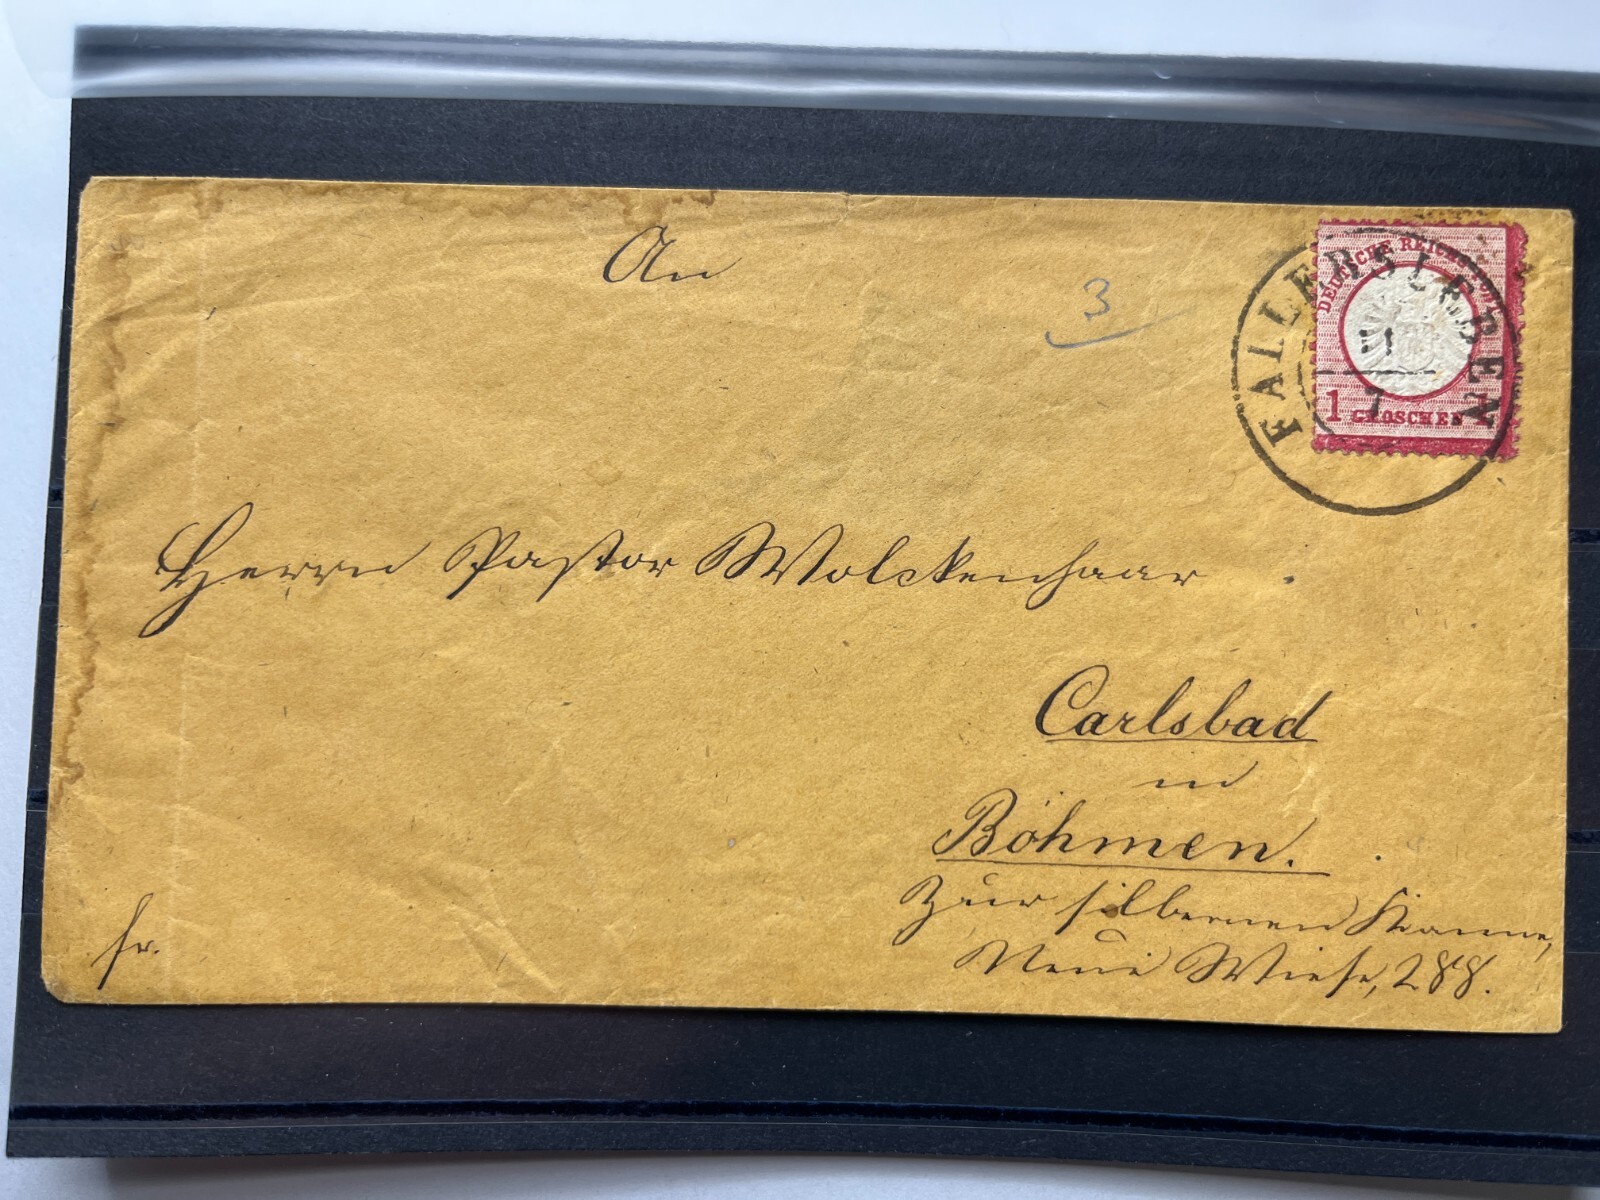 An
3
FALLERSLEBEN
1
7
DEUTSCHE REICHS-POST
1 GROSCHEN 1
Herrn Pastor Wolckenhaar
Carlsbad
in
Böhmen.
Zur silbernen Kanne,
Neue Wiese, 288.
fr.